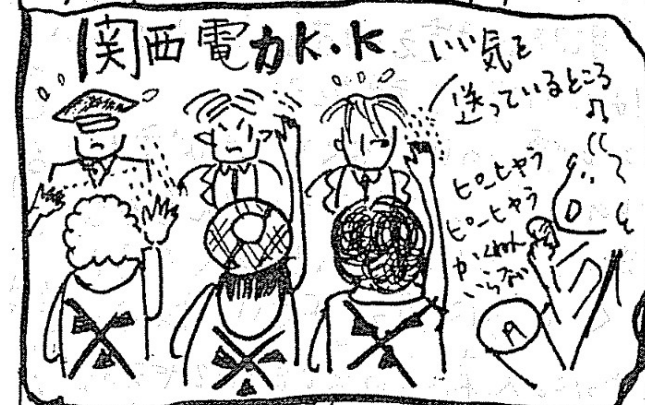 関西電力K.K
いい気を
送っているところ
ピーヒャラ
ピーヒャラ
かくねん
いらない